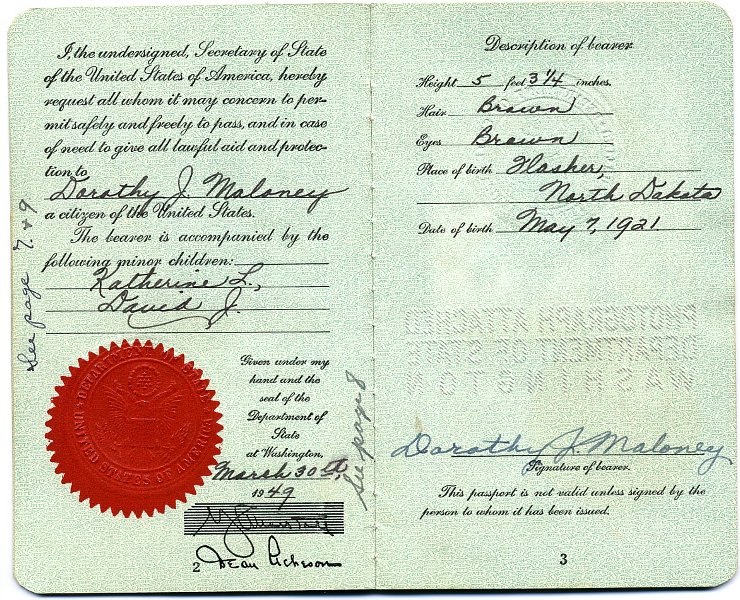 I, the undersigned, Secretary of State
of the United States of America, hereby
request all whom it may concern to per-
mit safely and freely to pass, and in case
of need to give all lawful aid and protec-
tion to
Dorothy J. Maloney
a citizen of the United States.
The bearer is accompanied by the
following minor children:
Katherine L.,
David J.
See page 7 & 9
DEPARTMENT OF STATE
UNITED STATES OF AMERICA
Given under my
hand and the
seal of the
Department of
State
at Washington,
March 30th,
1949
Dean Acheson
2
See page 8
Description of bearer
Height 5 feet 3 1/4 inches.
Hair Brown
Eyes Brown
Place of birth Flasher,
North Dakota
Date of birth May 7, 1921
PHOTOGRAPH ATTACHED
DEPARTMENT OF STATE
WASHINGTON
Dorothy J. Maloney
Signature of bearer.
This passport is not valid unless signed by the
person to whom it has been issued.
3